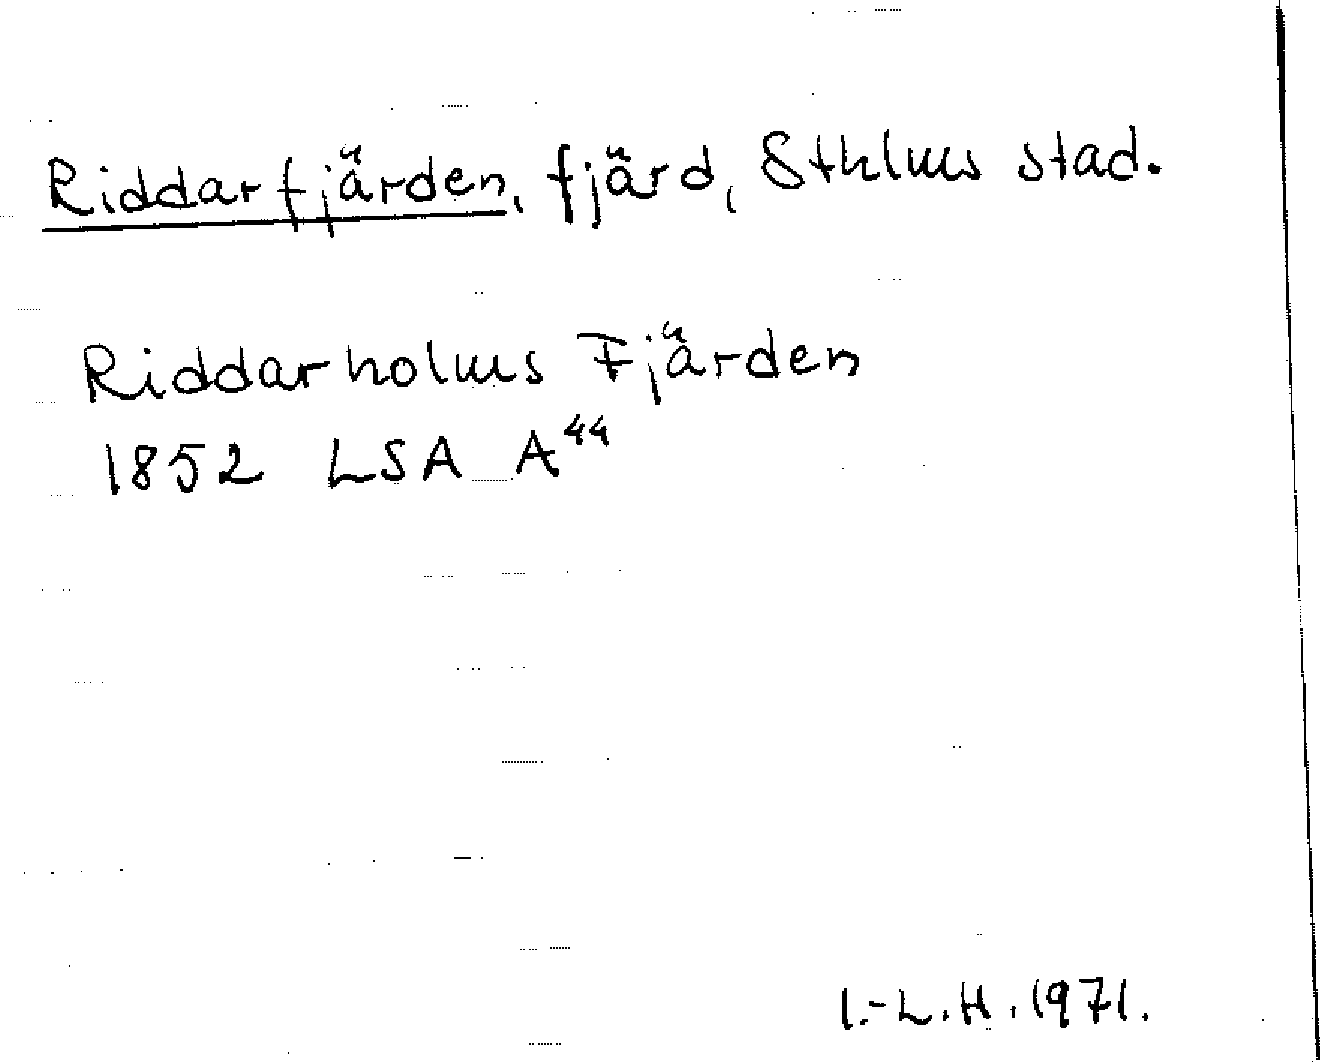 Riddarfjärden, fjärd, Sthlms stad.
Riddarholms Fjärden
1852 LSA A44
I.-L.H. 1971.